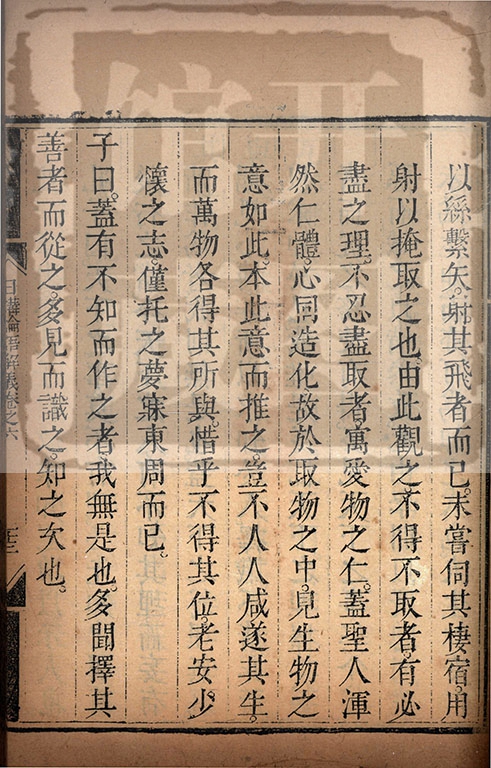 以絲繫矢。射其飛者而已。未嘗伺其棲宿。用
射以掩取之也。由此觀之。不得不取者。有必
盡之理。不忍盡取者。寓愛物之仁。蓋聖人渾
然仁體。心同造化。故於取物之中。見生物之
意如此。本此意而推之。豈不人人咸遂其生。
而萬物各得其所與。惜乎不得其位。老安少
懷之志。僅托之夢寐東周而已。
子曰。蓋有不知而作之者。我無是也。多聞擇其
善者而從之。多見而識之。知之次也。
日講四書解義卷之六